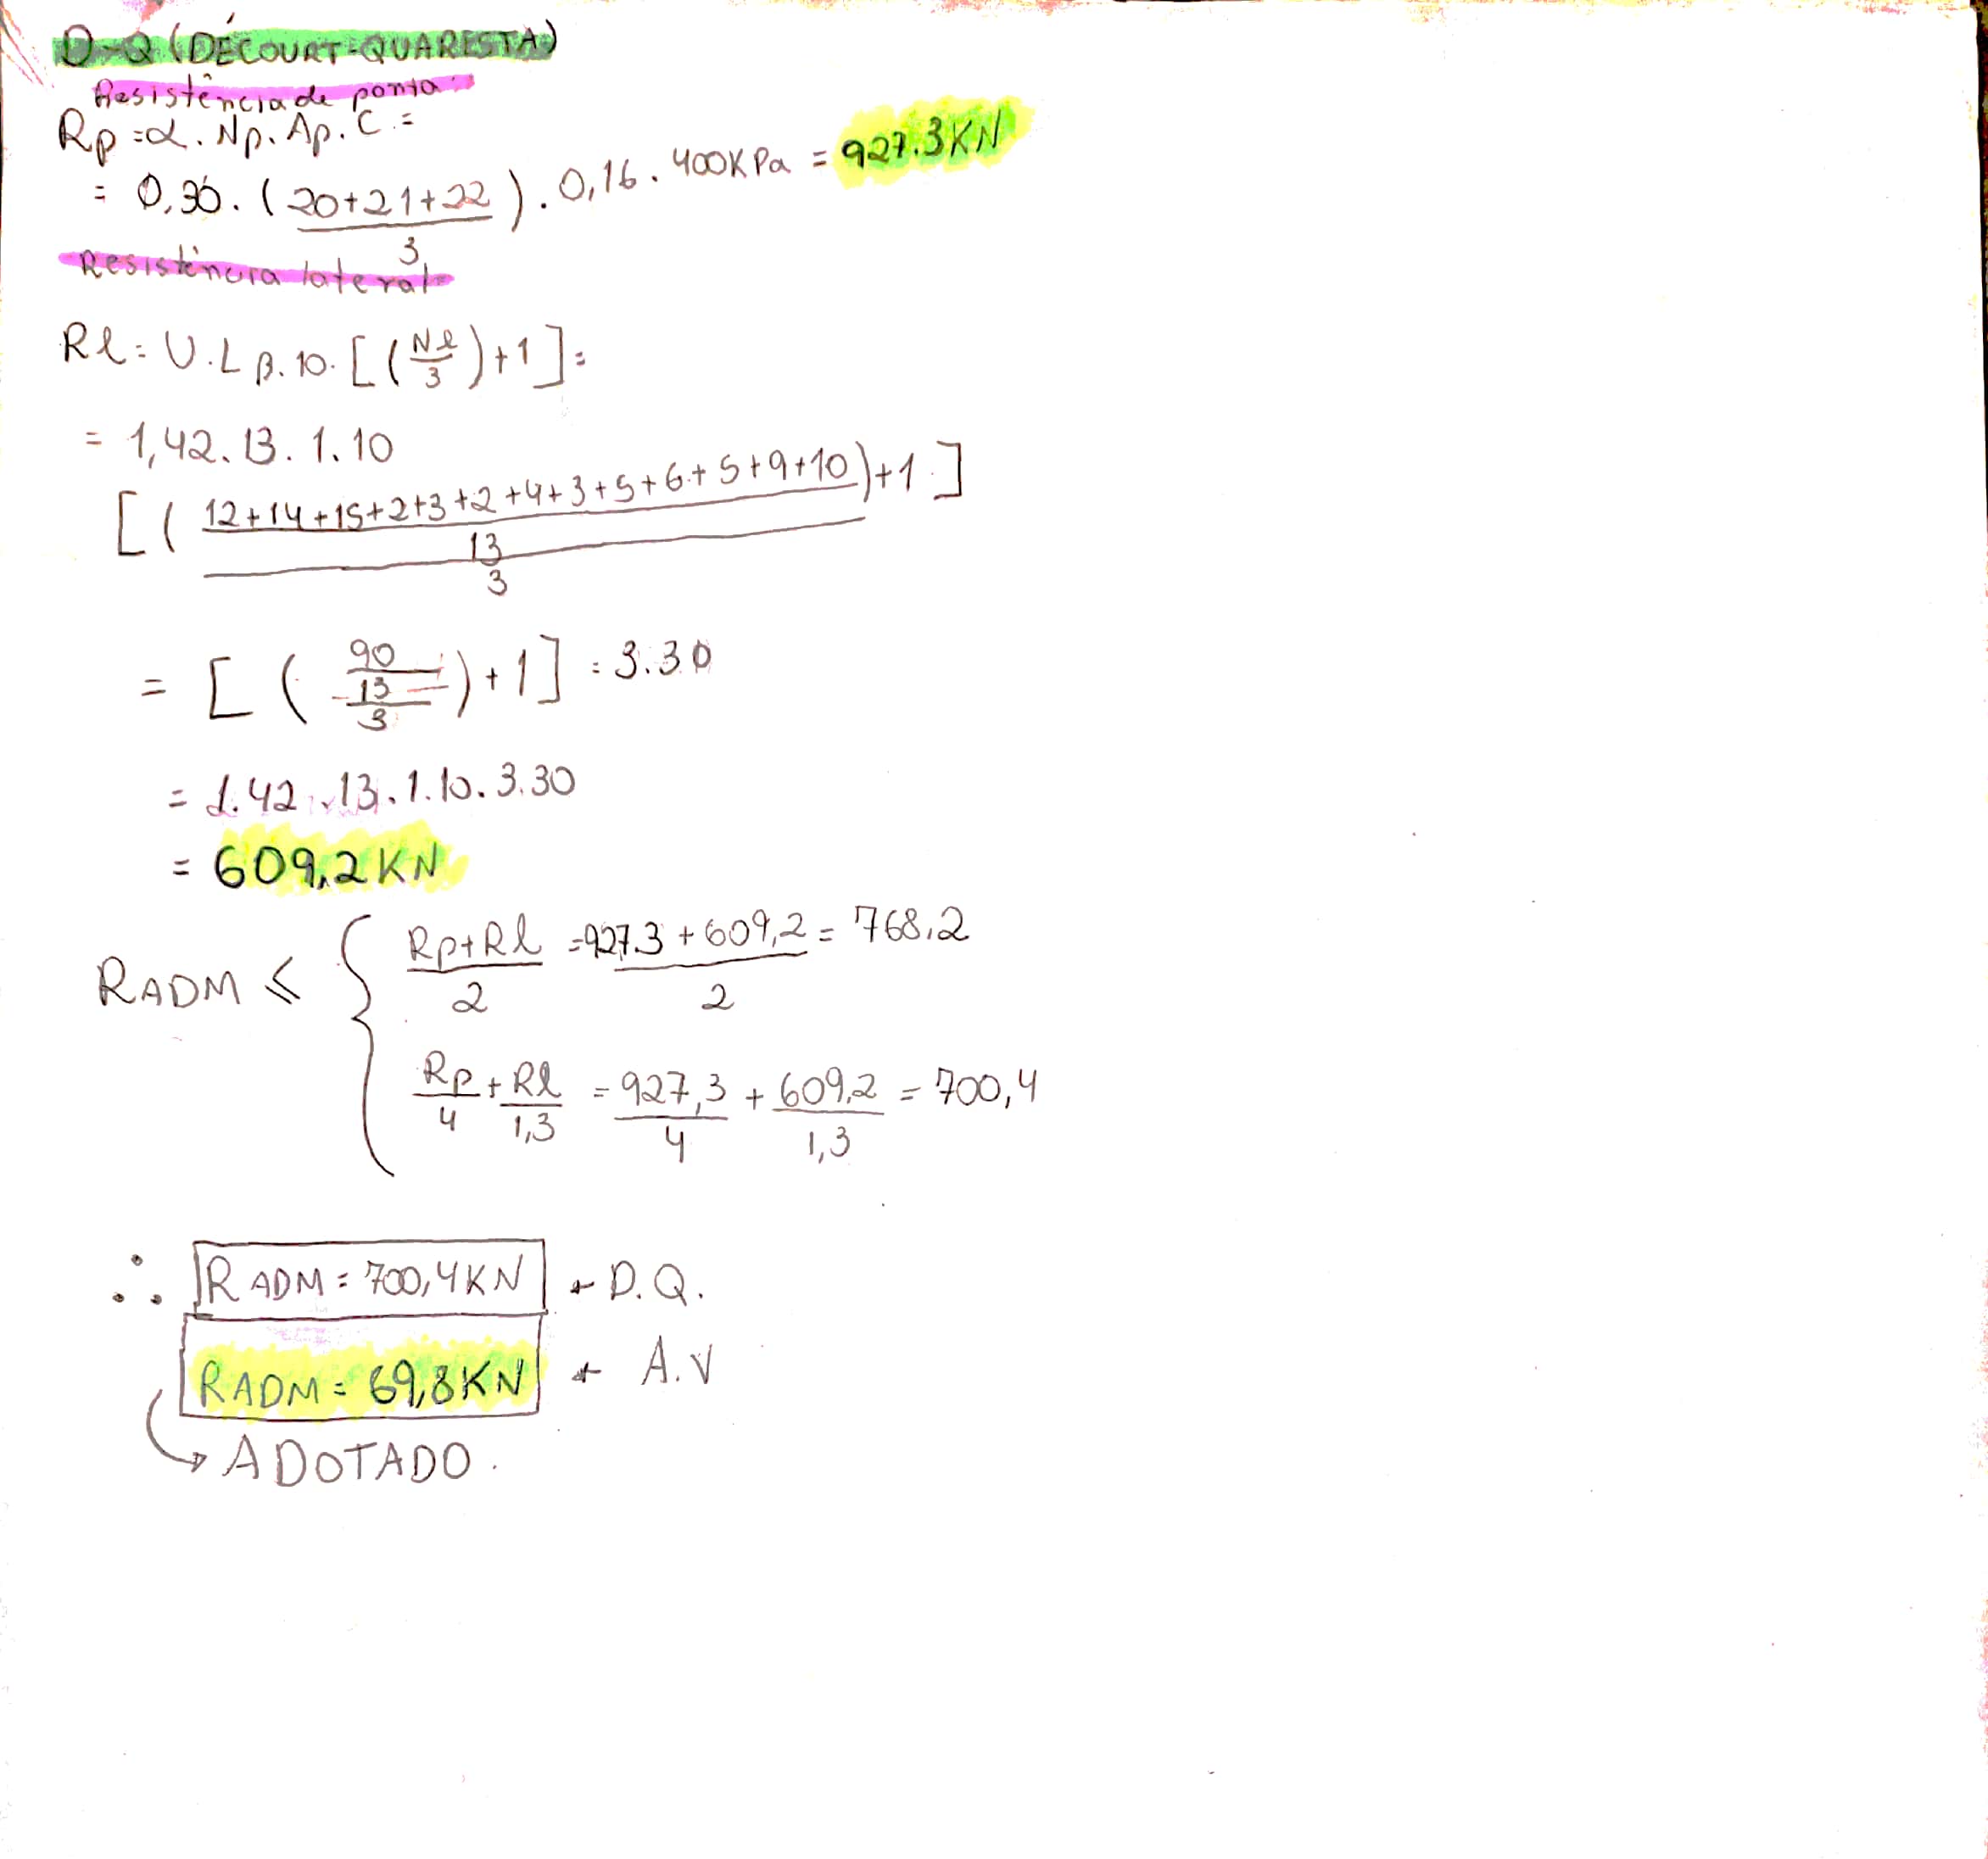 D-Q (DÉCOURT-QUARESTA)
Resistência de ponta
Rp = α. Np. Ap. C. =
= 0,30. (20+21+22 / 3). 0,16. 400KPa = 927.3KN
Resistência lateral
Rl = U.L β. 10. [(Nl/3)+1] =
= 1,42. 13. 1. 10
[((12+14+15+2+3+2+4+3+5+6+5+9+10 / 13) / 3)+1]
= [((90/13)/3)+1] = 3.30
= 1.42. 13. 1. 10. 3.30
= 609,2 KN
RADM ⩽ { Rp+Rl / 2 = 927.3 + 609,2 / 2 = 768,2
Rp/4 + Rl/1,3 = 927,3/4 + 609,2/1,3 = 700,4
∴ RADM = 700,4KN ← D.Q.
RADM = 69,8KN ← A.V
↳ ADOTADO.